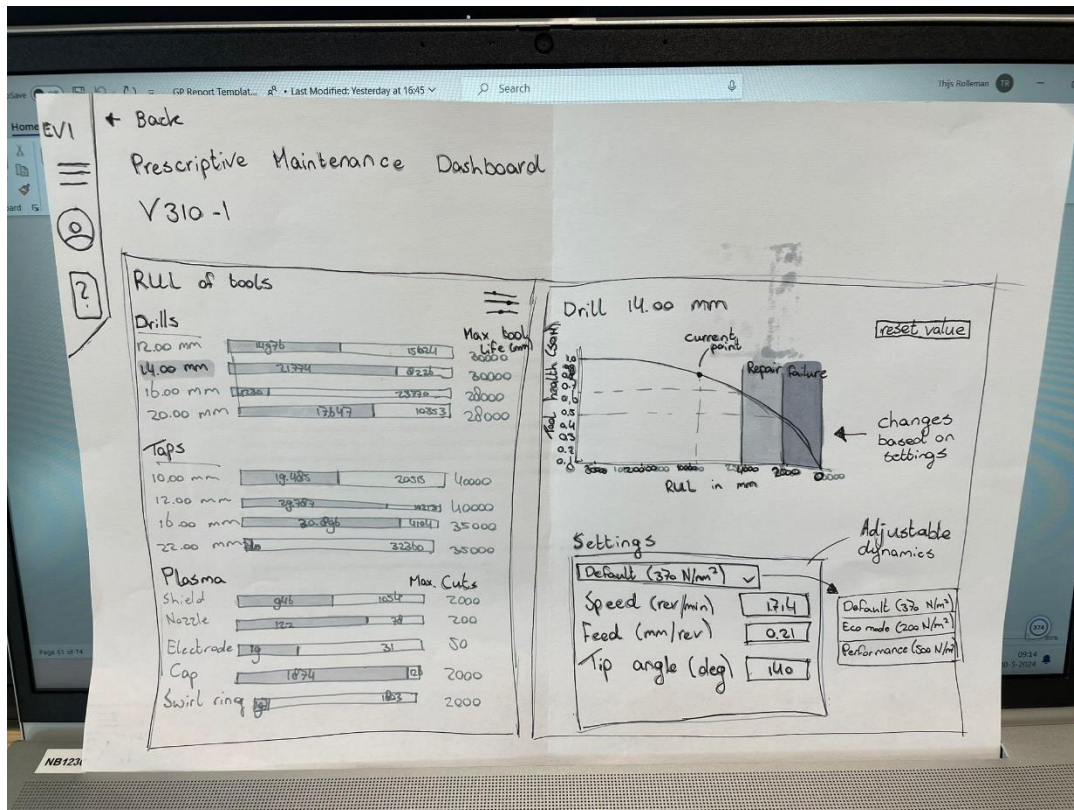 GP Report Templat... • Last Modified: Yesterday at 16:45
Search
Thijs Rolleman TR
Home
EVI
← Back
Prescriptive Maintenance Dashboard
V310-1
?
RUL of tools
Drills
Max. tool Life (mm)
12.00 mm 14376 15624 30000
14.00 mm 21774 8226 30000
16.00 mm 23770 28000
20.00 mm 17647 10353 28000
Taps
10.00 mm 19.485 20515 40000
12.00 mm 29787 40000
16.00 mm 30.896 4104 35000
22.00 mm 32360 35000
Plasma Max. Cuts
Shield 946 1054 2000
Nozzle 122 78 200
Electrode 19 31 50
Cap 1874 2000
Swirl ring 2000
Drill 14.00 mm
reset value
current point
Repair Failure
Tool health (SOH)
0.5
0.4
0.3
0.2
0.1
RUL in mm
changes based on settings
Settings
Adjustable dynamics
Default (370 N/mm²)
Speed (rev/min) 17.4
Feed (mm/rev) 0.21
Tip angle (deg) 140
Default (370 N/m²)
Eco mode (200 N/m²)
Performance (500 N/m²)
Page 61 of 74
09:14
NB123